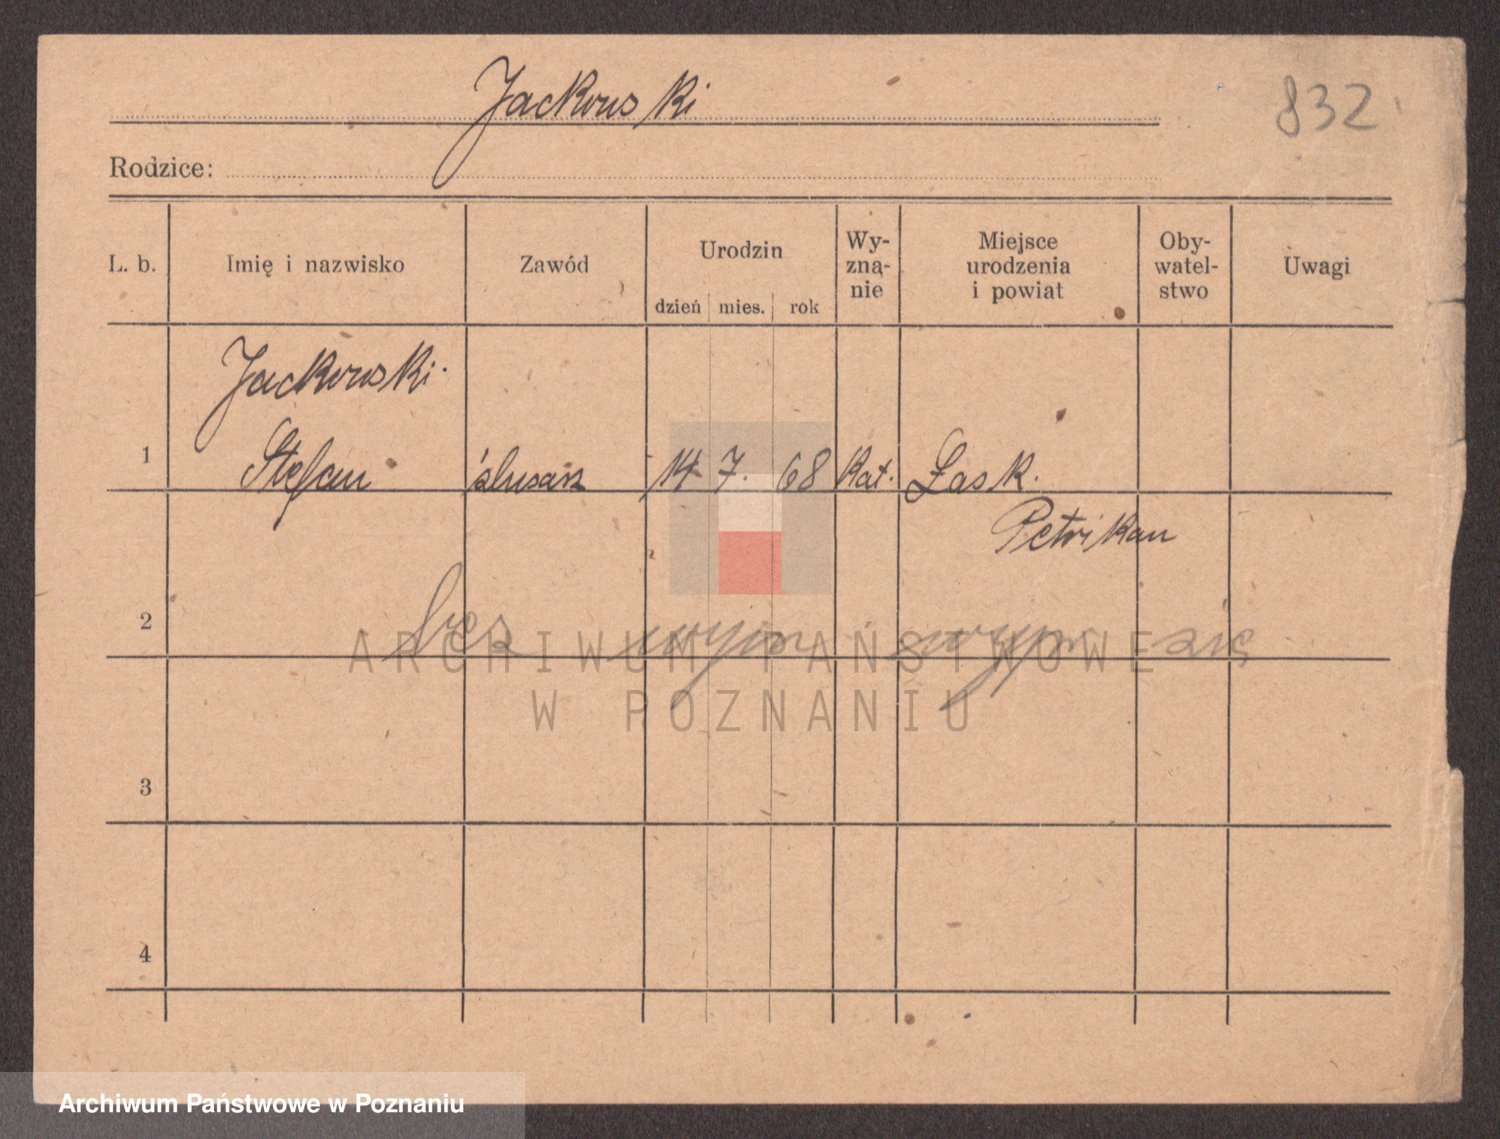 Jackowski
832
Rodzice:
L. b.
Imię i nazwisko
Zawód
Urodzin
dzień mies. rok
Wy-
zną-
nie
Miejsce
urodzenia
i powiat
Oby-
watel-
stwo
Uwagi
Jackowski.
1 Stefan ślusarz 14 7. 68 Kat. Łask.
Petrikau
2
bez wyjm wypr się
ARCHIWUM PAŃSTWOWE
W POZNANIU
3
4
Archiwum Państwowe w Poznaniu